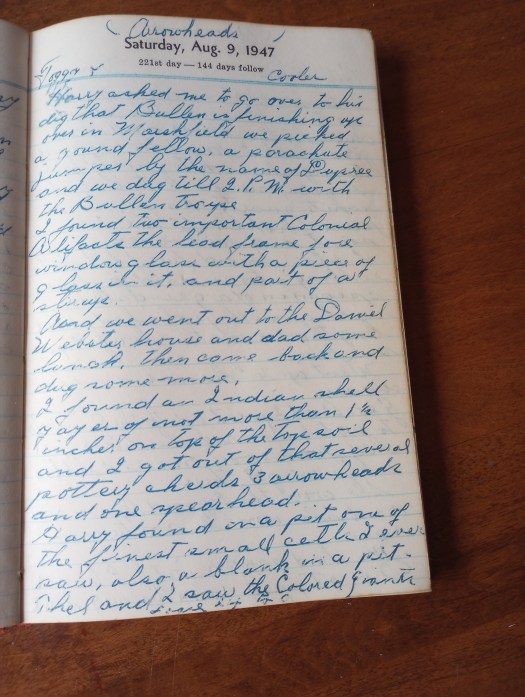 (Arrowheads)
Saturday, Aug. 9, 1947
221st day — 144 days follow
Foggy & Cooler
Harry asked me to go over to his
dig that Bullen is finishing up
over in Marshfield we picked
a young fellow, a parachute
jumper by the name of Dupree
and we dug till 2. P.M. with
the Bullen troupe
I found two important Colonial
Artifacts the lead frame for
window glass with a piece of
glass in it, and part of a
And we went out to the Daniel
Webster house and dad some
lunch, then came back and
dug some more.
I found an Indian shell
layer of not more than 1½
inches on top of the top soil
and I got out of that several
pottery sherds 3 arrowheads
and one spearhead.
Harry found in a pit one of
the finest small celts I ever
saw, also a blank in a pit.
Thel and I saw the Colored Giants